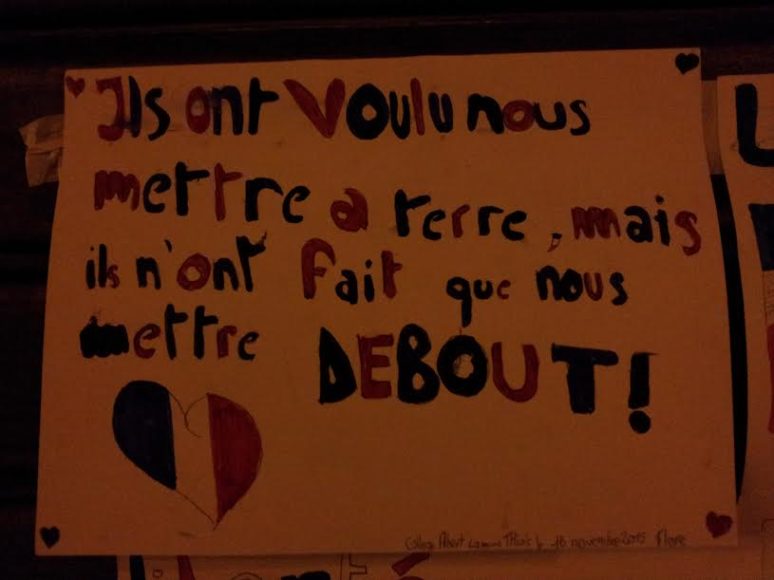 Ils ont Voulu nous
mettre a terre, mais
ils n'ont fait que nous
mettre DEBOUT!
College Albert le 18 novembre 2015